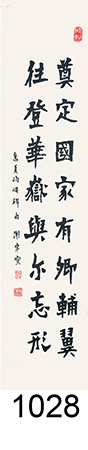 奠定國家有卿輔翼
往登華嶽與尔忘形
1028